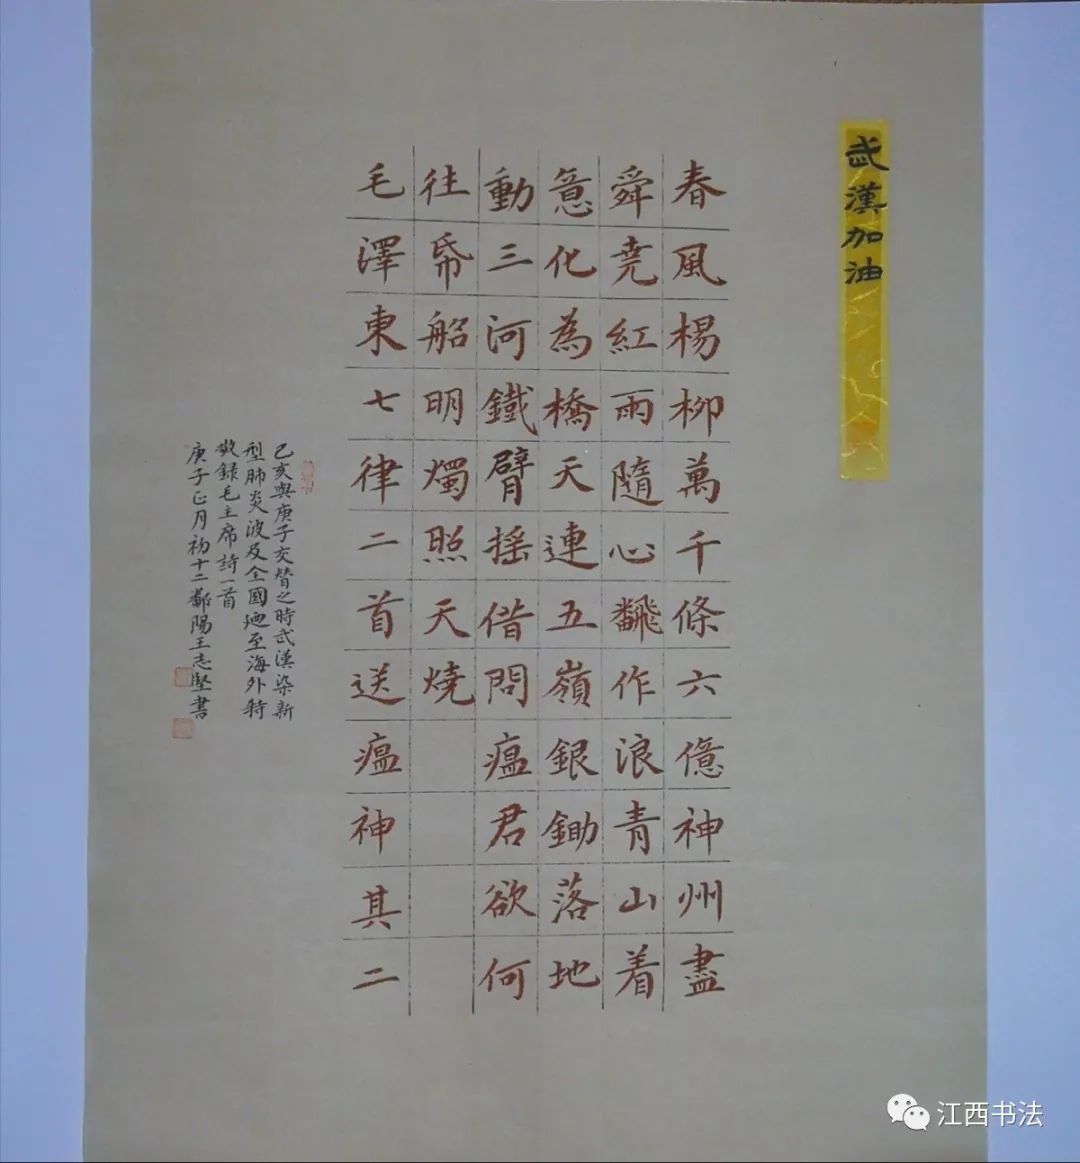 武漢加油
春風楊柳萬千條六億神州盡
舜尭紅雨隨心飜作浪青山着
意化為橋天連五嶺銀鋤落地
動三河鐵臂摇借問瘟君欲何
往帋船明燭照天燒
毛澤東七律二首送瘟神其二
己亥與庚子交替之時武漢染新
型肺炎波及全國廼至海外特
敬録毛主席詩一首
庚子正月初十二鄱陽王志堅書
江西书法